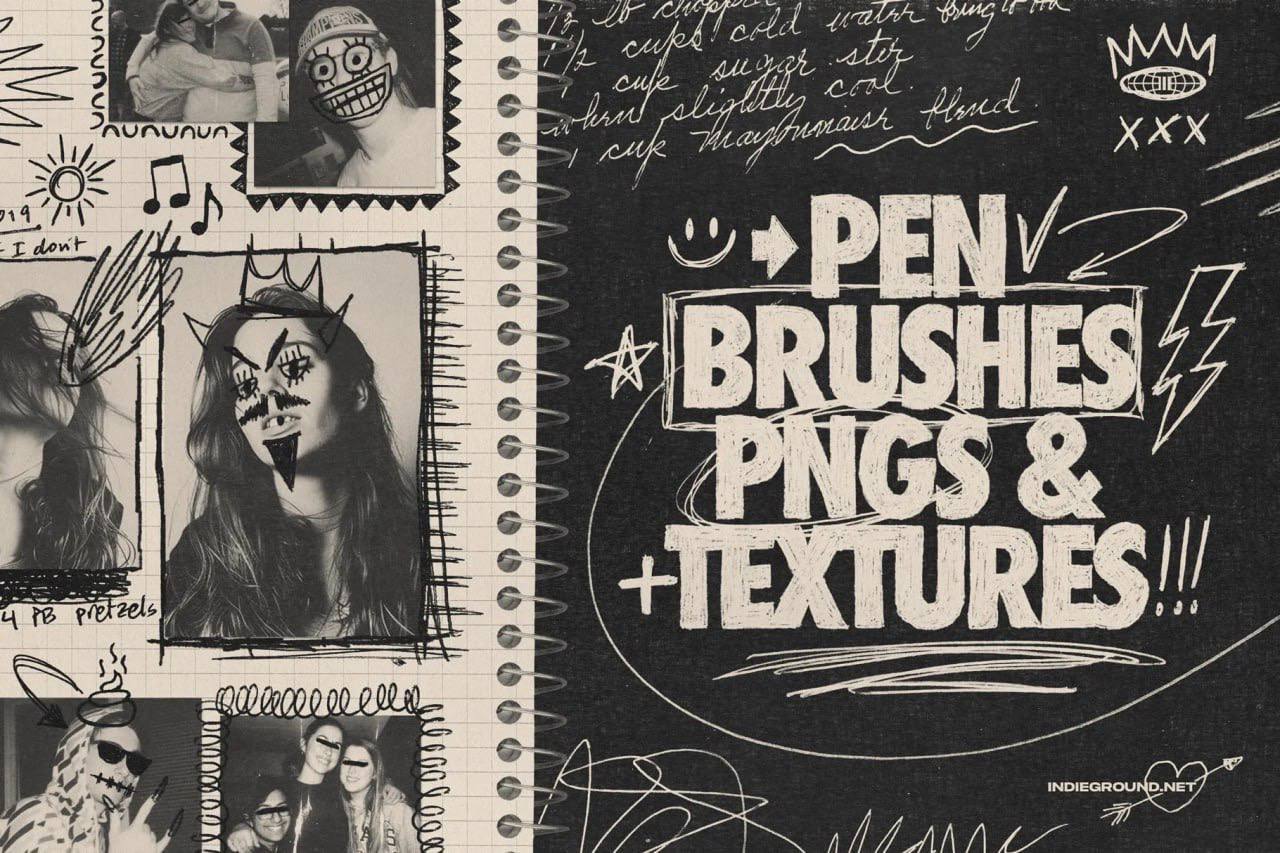 CHAMPIONS
2019
I don't
4 PB pretzels
1/2 lb chopped
1 1/2 cups cold water
1 cup sugar stir
when slightly cool.
1 cup mayonnaise blend.
XXX
PEN
BRUSHES
PNGS &
+TEXTURES!!!
INDIEGROUND.NET